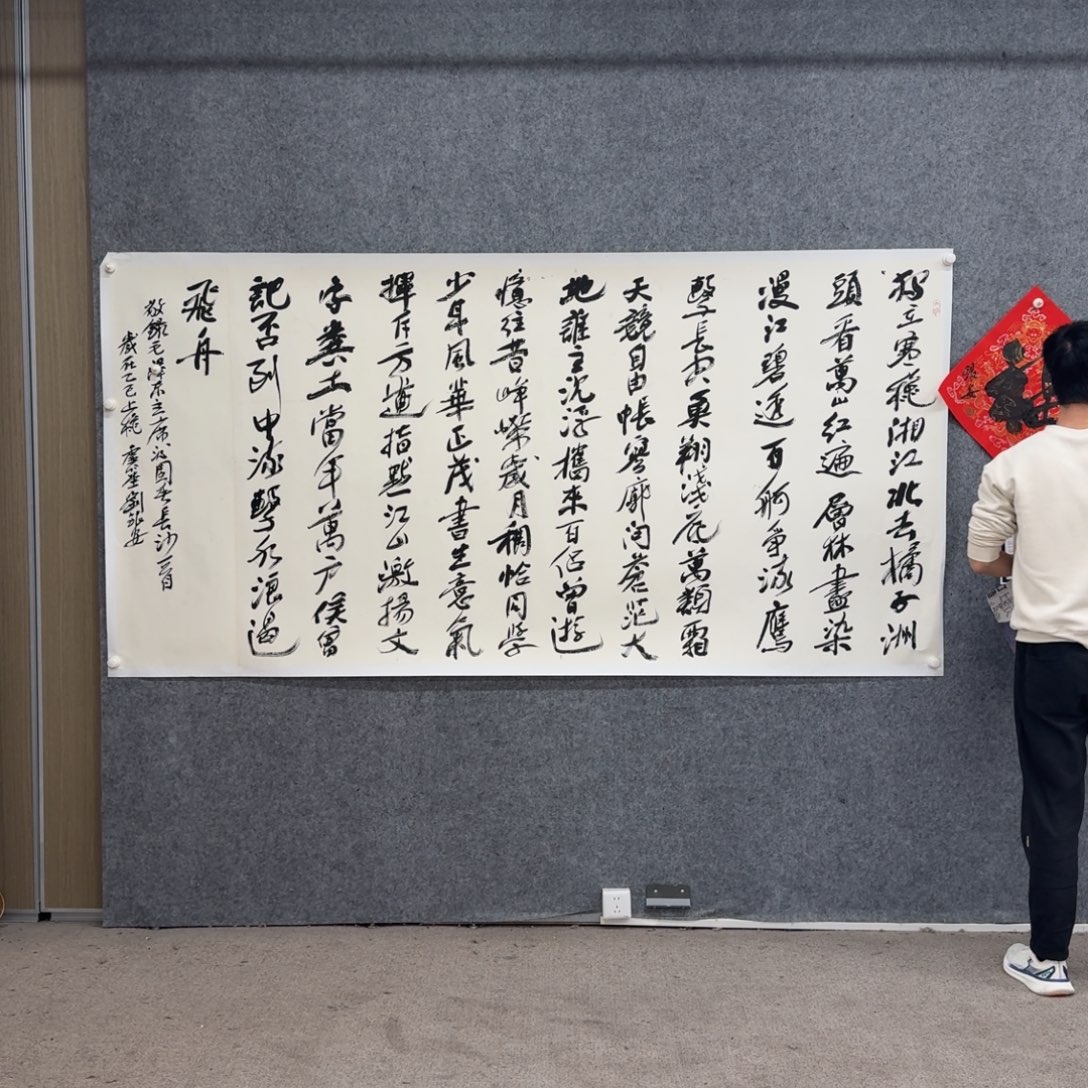 獨立寒穐湘江北去橘子洲
頭看萬山紅遍層林盡染
漫江碧透百舸爭流鷹
擊長空魚翔淺底萬類霜
天競自由悵寥廓問蒼茫大
地誰主沉浮攜來百侶曾遊
憶往昔崢嶸歲月稠恰同學
少年風華正茂書生意氣
揮斥方遒指點江山激揚文
字糞土當年萬戶侯曾
記否到中流擊水浪遏
飛舟
敬錄毛澤東主席沁園春長沙一首
歲在乙巳上穐